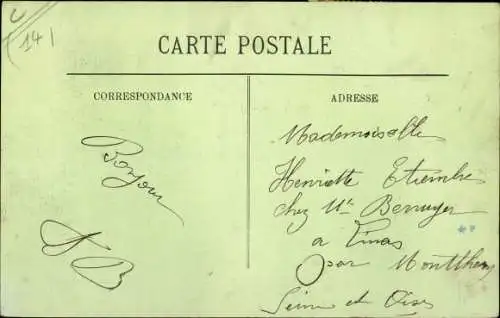 14
CARTE POSTALE
CORRESPONDANCE
ADRESSE
Bonjour
B
Mademoiselle
Henriette Etiembre
chez Mr Berruyer
a Linas
par Montlhery
Seine et Oise